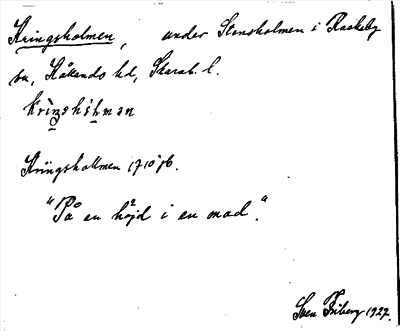 Kringsholmen, under Stensholmen i Rackeby
sn, Kållands hd, Skarab. l.
krìŋshòl̥mən
Kringshollmen 1710 jb.
"På en höjd i en mad".
Sven Friberg 1927.